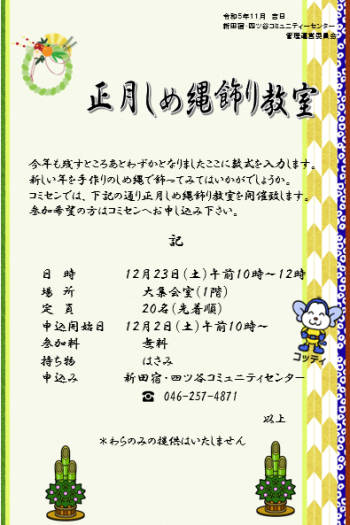 令和5年11月 吉日
新田宿・四ツ谷コミュニティーセンター
管理運営委員会
正月しめ縄飾り教室
今年も残すところあとわずかとなりましたここに数式を入力します。
新しい年を手作りのしめ縄で飾ってみてはいかがでしょうか。
コミセンでは、下記の通り正月しめ縄飾り教室を開催致します。
参加希望の方はコミセンへお申し込み下さい。
記
日 時 12月23日(土)午前10時~12時
場 所 大集会室(1階)
定 員 20名(先着順)
申込開始日 12月2日(土)午前10時~
参加料 無料
持ち物 はさみ
申込み 新田宿・四ツ谷コミュニティセンター
☎ 046-257-4871
以上
*わらのみの提供はいたしません
コッティ